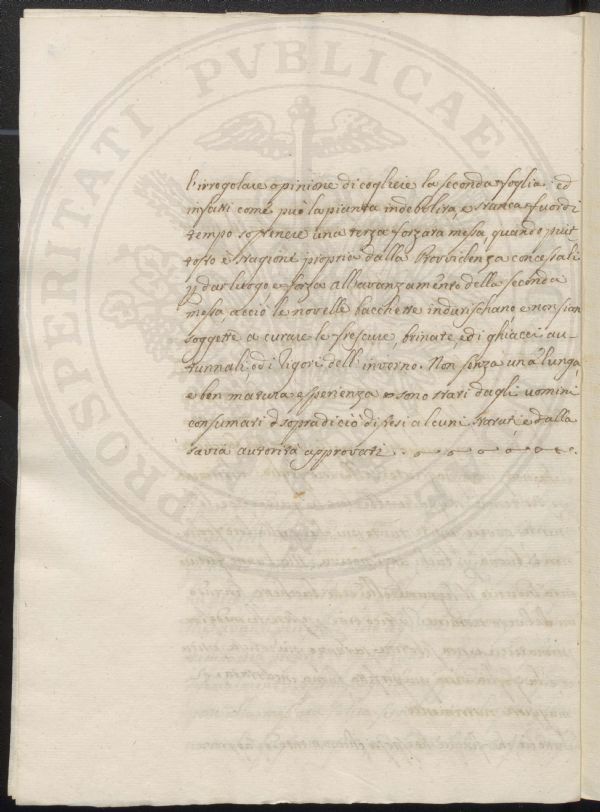 PROSPERITATI PVBLICAE
l'irregolare opinione di cogliere la seconda foglia. ed
infatti come può la pianta indebolita, e stanca fuor di
tempo sostenere una terza forzata messa, quando piut
tosto è stagione propria dalla Providenza concessali
p dar luogo e forza all'avanzamento della seconda
messa, acciò le novelle bacchette indurischano, e non sian
soggette a curare le frescure, brinate, ed i ghiacci au-
tunnali, ed i rigori dell'inverno. Non senza una lunga,
e ben matura esperienza sono stati dagli uomini
consumati sopra di ciò distesi alcuni statuti e dalla
savia autorità approvati.